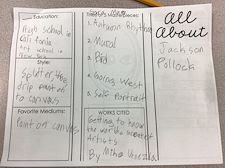 Education:
High school in
California
Art school in
New York
Style:
Splatter, he
drip paint on
to canvas
Favorite Mediums:
Paint on canvas
Masterpieces:
1. Autumn Rhythm
2. Mural
3. Bird
4. Going West
5. Self Portrait
WORKS CITED
Getting to know
the world's greatest
Artists
By Mike Venezia
All
About
Jackson
Pollock